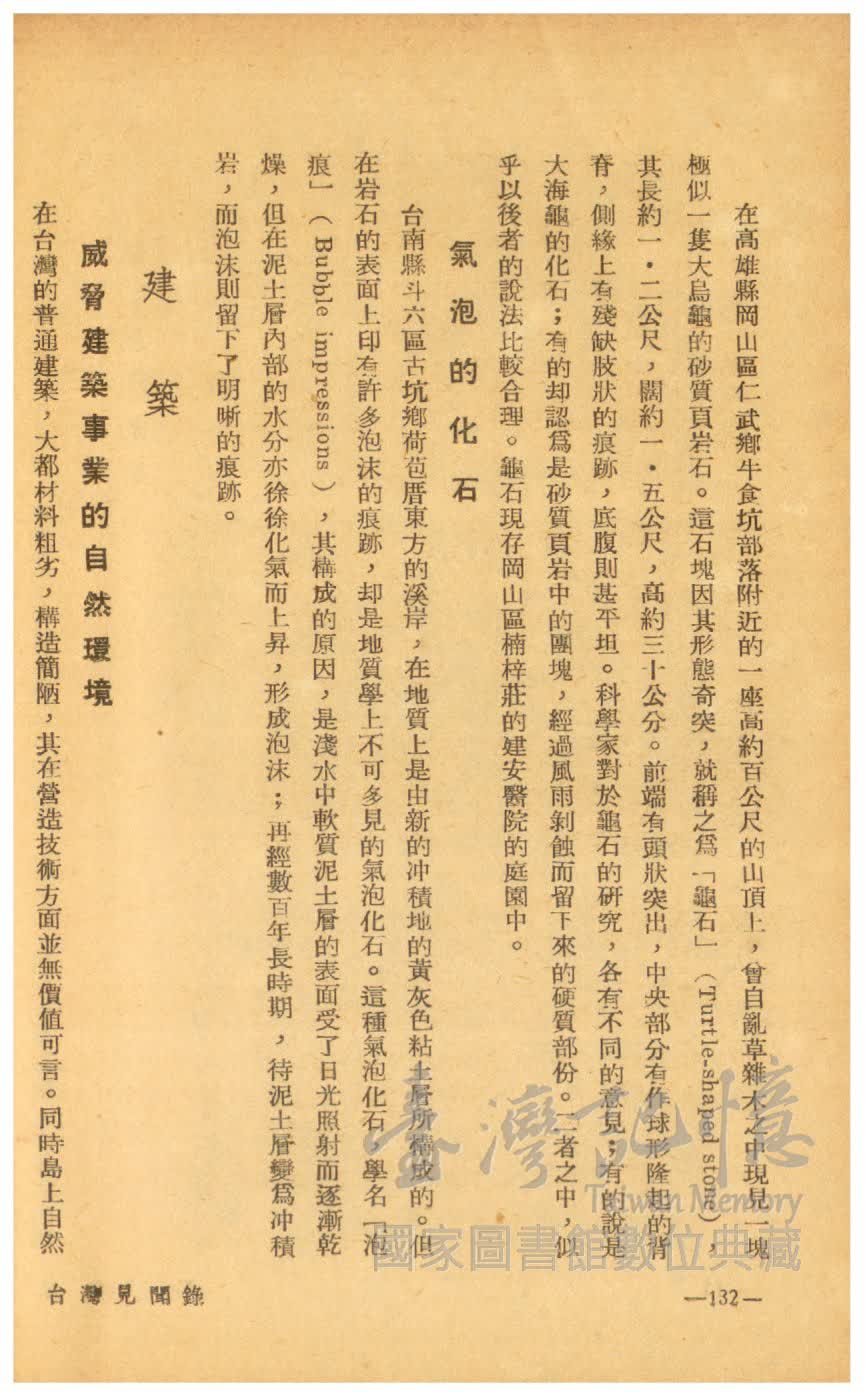 在高雄縣岡山區仁武鄉牛食坑部落附近的一座高約百公尺的山頂上，曾自亂草雜木之中現見一塊
極似一隻大烏龜的砂質頁岩石。這石塊因其形態奇突，就稱之爲「龜石」（Turtle-shaped stone），
其長約一・二公尺，闊約一・五公尺，高約三十公分。前端有頭狀突出，中央部分有作球形隆起的背
脊，側緣上有殘缺肢狀的痕跡，底腹則甚平坦。科學家對於龜石的研究，各有不同的意見；有的說是
大海龜的化石；有的却認爲是砂質頁岩中的團塊，經過風雨剝蝕而留下來的硬質部份。二者之中，似
乎以後者的說法比較合理。龜石現存岡山區楠梓莊的建安醫院的庭園中。
氣泡的化石
台南縣斗六區古坑鄉荷苞厝東方的溪岸，在地質上是由新的冲積地的黃灰色粘土層所構成的。但
在岩石的表面上印有許多泡沫的痕跡，却是地質學上不可多見的氣泡化石。這種氣泡化石，學名「泡
痕」（Bubble impressions），其構成的原因，是淺水中軟質泥土層的表面受了日光照射而逐漸乾
燥，但在泥土層內部的水分亦徐徐化氣而上昇，形成泡沫；再經數百年長時期，待泥土層變爲冲積
岩，而泡沫則留下了明晰的痕跡。
建築
威脅建築事業的自然環境
在台灣的普通建築，大都材料粗劣，構造簡陋，其在營造技術方面並無價值可言。同時島上自然
台灣見聞錄
—132—
臺灣記憶
Taiwan Memory
國家圖書館數位典藏